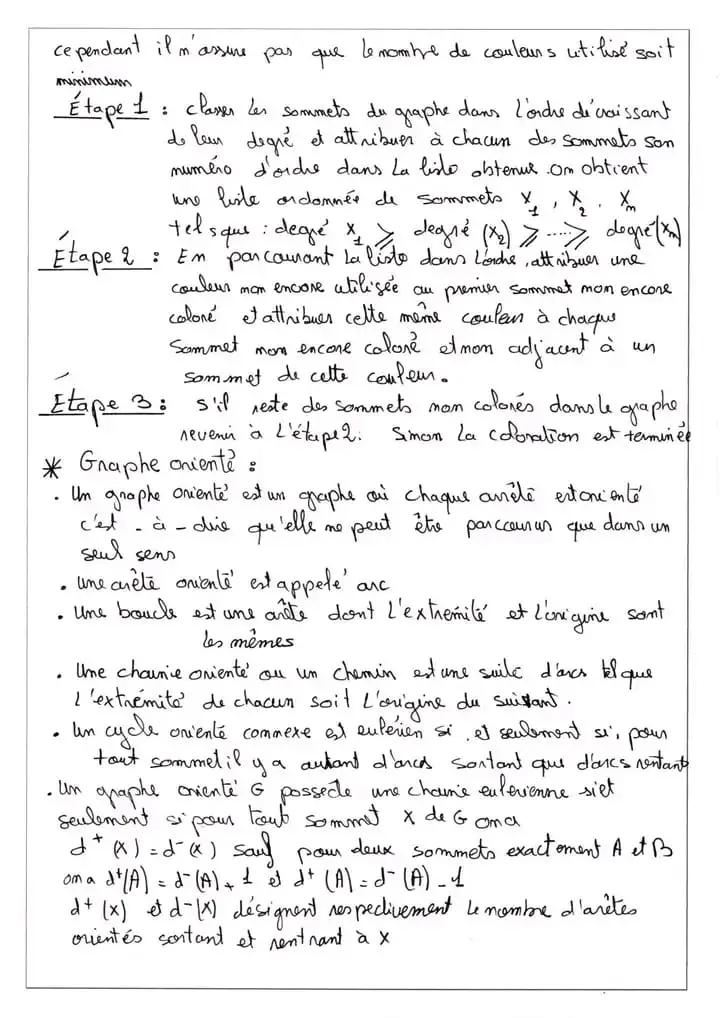 cependant il n'assure pas que le nombre de couleurs utilisé soit
minimum
Étape 1 : classer les sommets du graphe dans l'ordre décroissant
de leur degré et attribuer à chacun des sommets son
numéro d'ordre dans la liste obtenue. on obtient
une liste ordonnée de sommets X₁, X₂. Xₙ
tels que : degré X₁ ⩾ degré (X₂) ⩾ ..... ⩾ degré (Xₙ)
Étape 2 : En parcourant la liste dans l'ordre, attribuer une
couleur non encore utilisée au premier sommet non encore
coloré et attribuer cette même couleur à chaque
sommet non encore coloré et non adjacent à un
sommet de cette couleur.
Étape 3 : s'il reste des sommets non colorés dans le graphe
revenir à l'étape 2. Sinon la coloration est terminée
* Graphe orienté :
. Un graphe orienté est un graphe où chaque arrêtê est orienté
c'est - à - dire qu'elle ne peut être parcourus que dans un
seul sens
. une arête orienté est appelé arc
. Une boucle est une arête dont l'extremité et l'origine sont
les mêmes
. Une chaînie orienté ou un chemin est une suite d'arcs tel que
l'extrémité de chacun soit l'origine du suivant.
. Un cycle orienté connexe est eulérien si, et seulement si, pour
tout sommet il y a autant d'arcs sortant que d'arcs rentant
. Un graphe orienté G possede une chainie eulerienne si et
seulement si pour tout sommet X de G on a
d⁺(X) = d⁻(X) sauf pour deux sommets exactement A et B
on a d⁺(A) = d⁻(A) + 1 et d⁺(A) = d⁻(A) - 1
d⁺(x) et d⁻(x) désignent respectivement le nombre d'arêtes
orientés sortant et rentrant à X